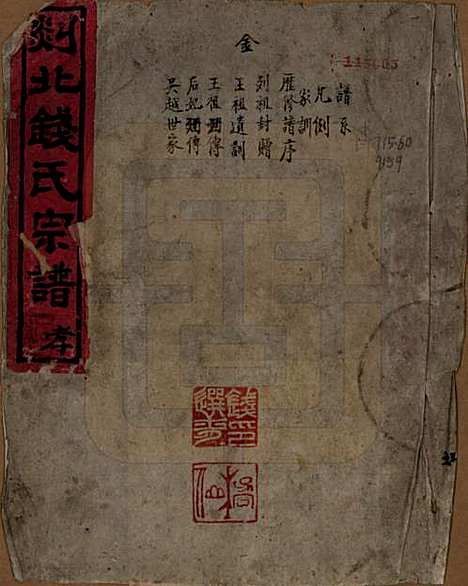 剡北錢氏宗譜
孝
金
譜系
凡例
家訓
歷修譜序
列祖封贈
王祖遺訓
王祖列傳
后妃列傳
吳越世家
915.60
9139